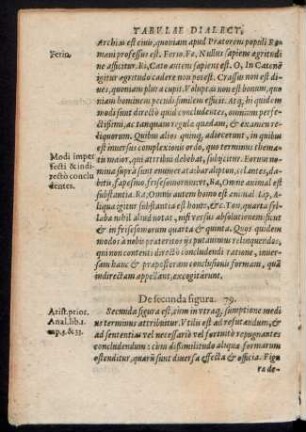 TABVLAE DIALECT,
Archias est ciuis, quoniam apud Praetorem populi Ro
Ferio.
mani professus est. Ferio. Fe, Nullus sapiens agritudi
ne afficitur. Ri, Cato autem sapiens est. O, In Catonẽ
igitur agritudo cadere non potest. Crassus non est di
ues, quoniam plus a cupit. Voluptas non est bonum, quo
niam hominem pecudi similem efficit. Atq; hi quidem
modi sunt directò quid concludentes, omnium perfe-
ctißimi, ac tanquam regula quædam, & examen re
liquorum. Quibus alios quinq; adiecerunt, in quibus
est inuersus complexionis ordo, quo terminus thema-
Modi imper
fecti & indi-
rectò conclu
dentes.
tis in maior, qui attribui debebat, subijcitur. Eorum no
mina suprà sunt enumerata baralipton, celantes, da-
bitis, fapesmo, frisesmorum. Ba, Omne animal est
substantia. Ra, Omnis autem homo est animal. Lip, A-
liqua igitur substantia est homo, &c. Ton, quarta syl-
laba nihil aliud notat, nisi versus absolutionem: sicut
& in frisesmorum quarta & quinta. Quos quidem
modos à nobis prætermissos iustè putamus relinquendos,
qui non contenti directò concludendi ratione, inuer-
sam hanc & præposteram conclusionis formam, quã
indirectam appellant, excogitarunt.
De secunda figura. 79.
Arist. prior.
Anal. lib. 1.
cap. 5. & 33.
Secunda figura est, cùm in vtraq; sumptione medi
us terminus attribuitur. Vtilis est ad refutandum, &
ad sententias vel necessariò vel fortuitò repugnantes
concludendum: cùm dißimilitudo aliqua formarum
ostenditur, quarũ sunt diuersa effecta & officia. Figu
rade-